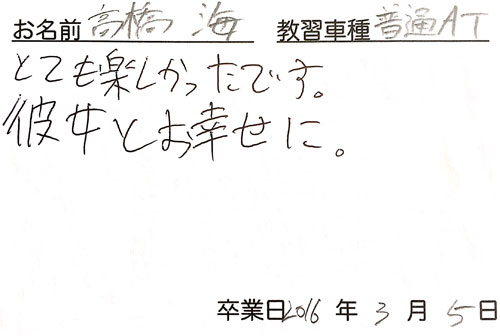 お名前 高橋 海 教習車種 普通AT
とても楽しかったです。
彼女とお幸せに。
卒業日2016年3月5日